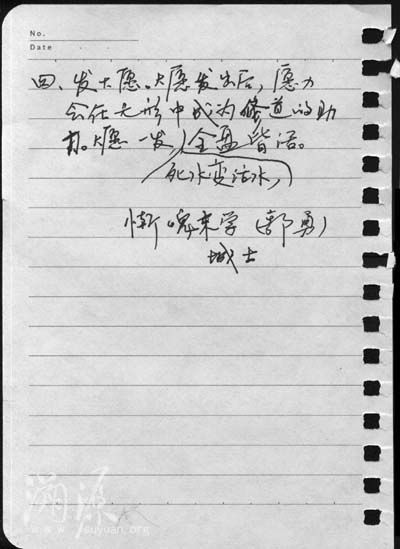 No.
Date
四、发大愿。大愿发出后,愿力
会在无形中成为修道的助
力。大愿一发,全盘皆活。
死水变活水,
晚来学(郭勇)
城士
溯源
www.suyuan.org